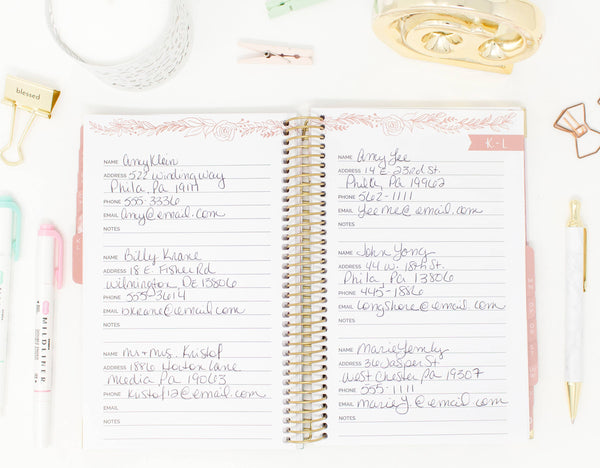 blessed
NAME Amy Klein
ADDRESS 522 Winding way
Phila, Pa 19111
PHONE 555-3336
EMAIL amy@email.com
NOTES
NAME Billy Krane
ADDRESS 18 E. Fisher Rd
Wilmington, DE 13806
PHONE 555-3614
EMAIL bkrane@email.com
NOTES
NAME Mr + Mrs. Kristof
ADDRESS 1886 Horton Lane
Media Pa 19063
PHONE Kristof12@email.com
EMAIL
NOTES
K-L
NAME Amy Lee
ADDRESS 14 E. 23rd St.
Philly, Pa 19962
PHONE 562-1111
EMAIL Leeme@email.com
NOTES
NAME John Yong
ADDRESS 44 W. 18th St.
Phila, Pa 13806
PHONE 445-1886
EMAIL longshore@email.com
NOTES
NAME Marie
ADDRESS 36 Jasper St
West Chester Pa 19307
PHONE 555-1111
EMAIL marie y.@email.com
NOTES
MILDLINER